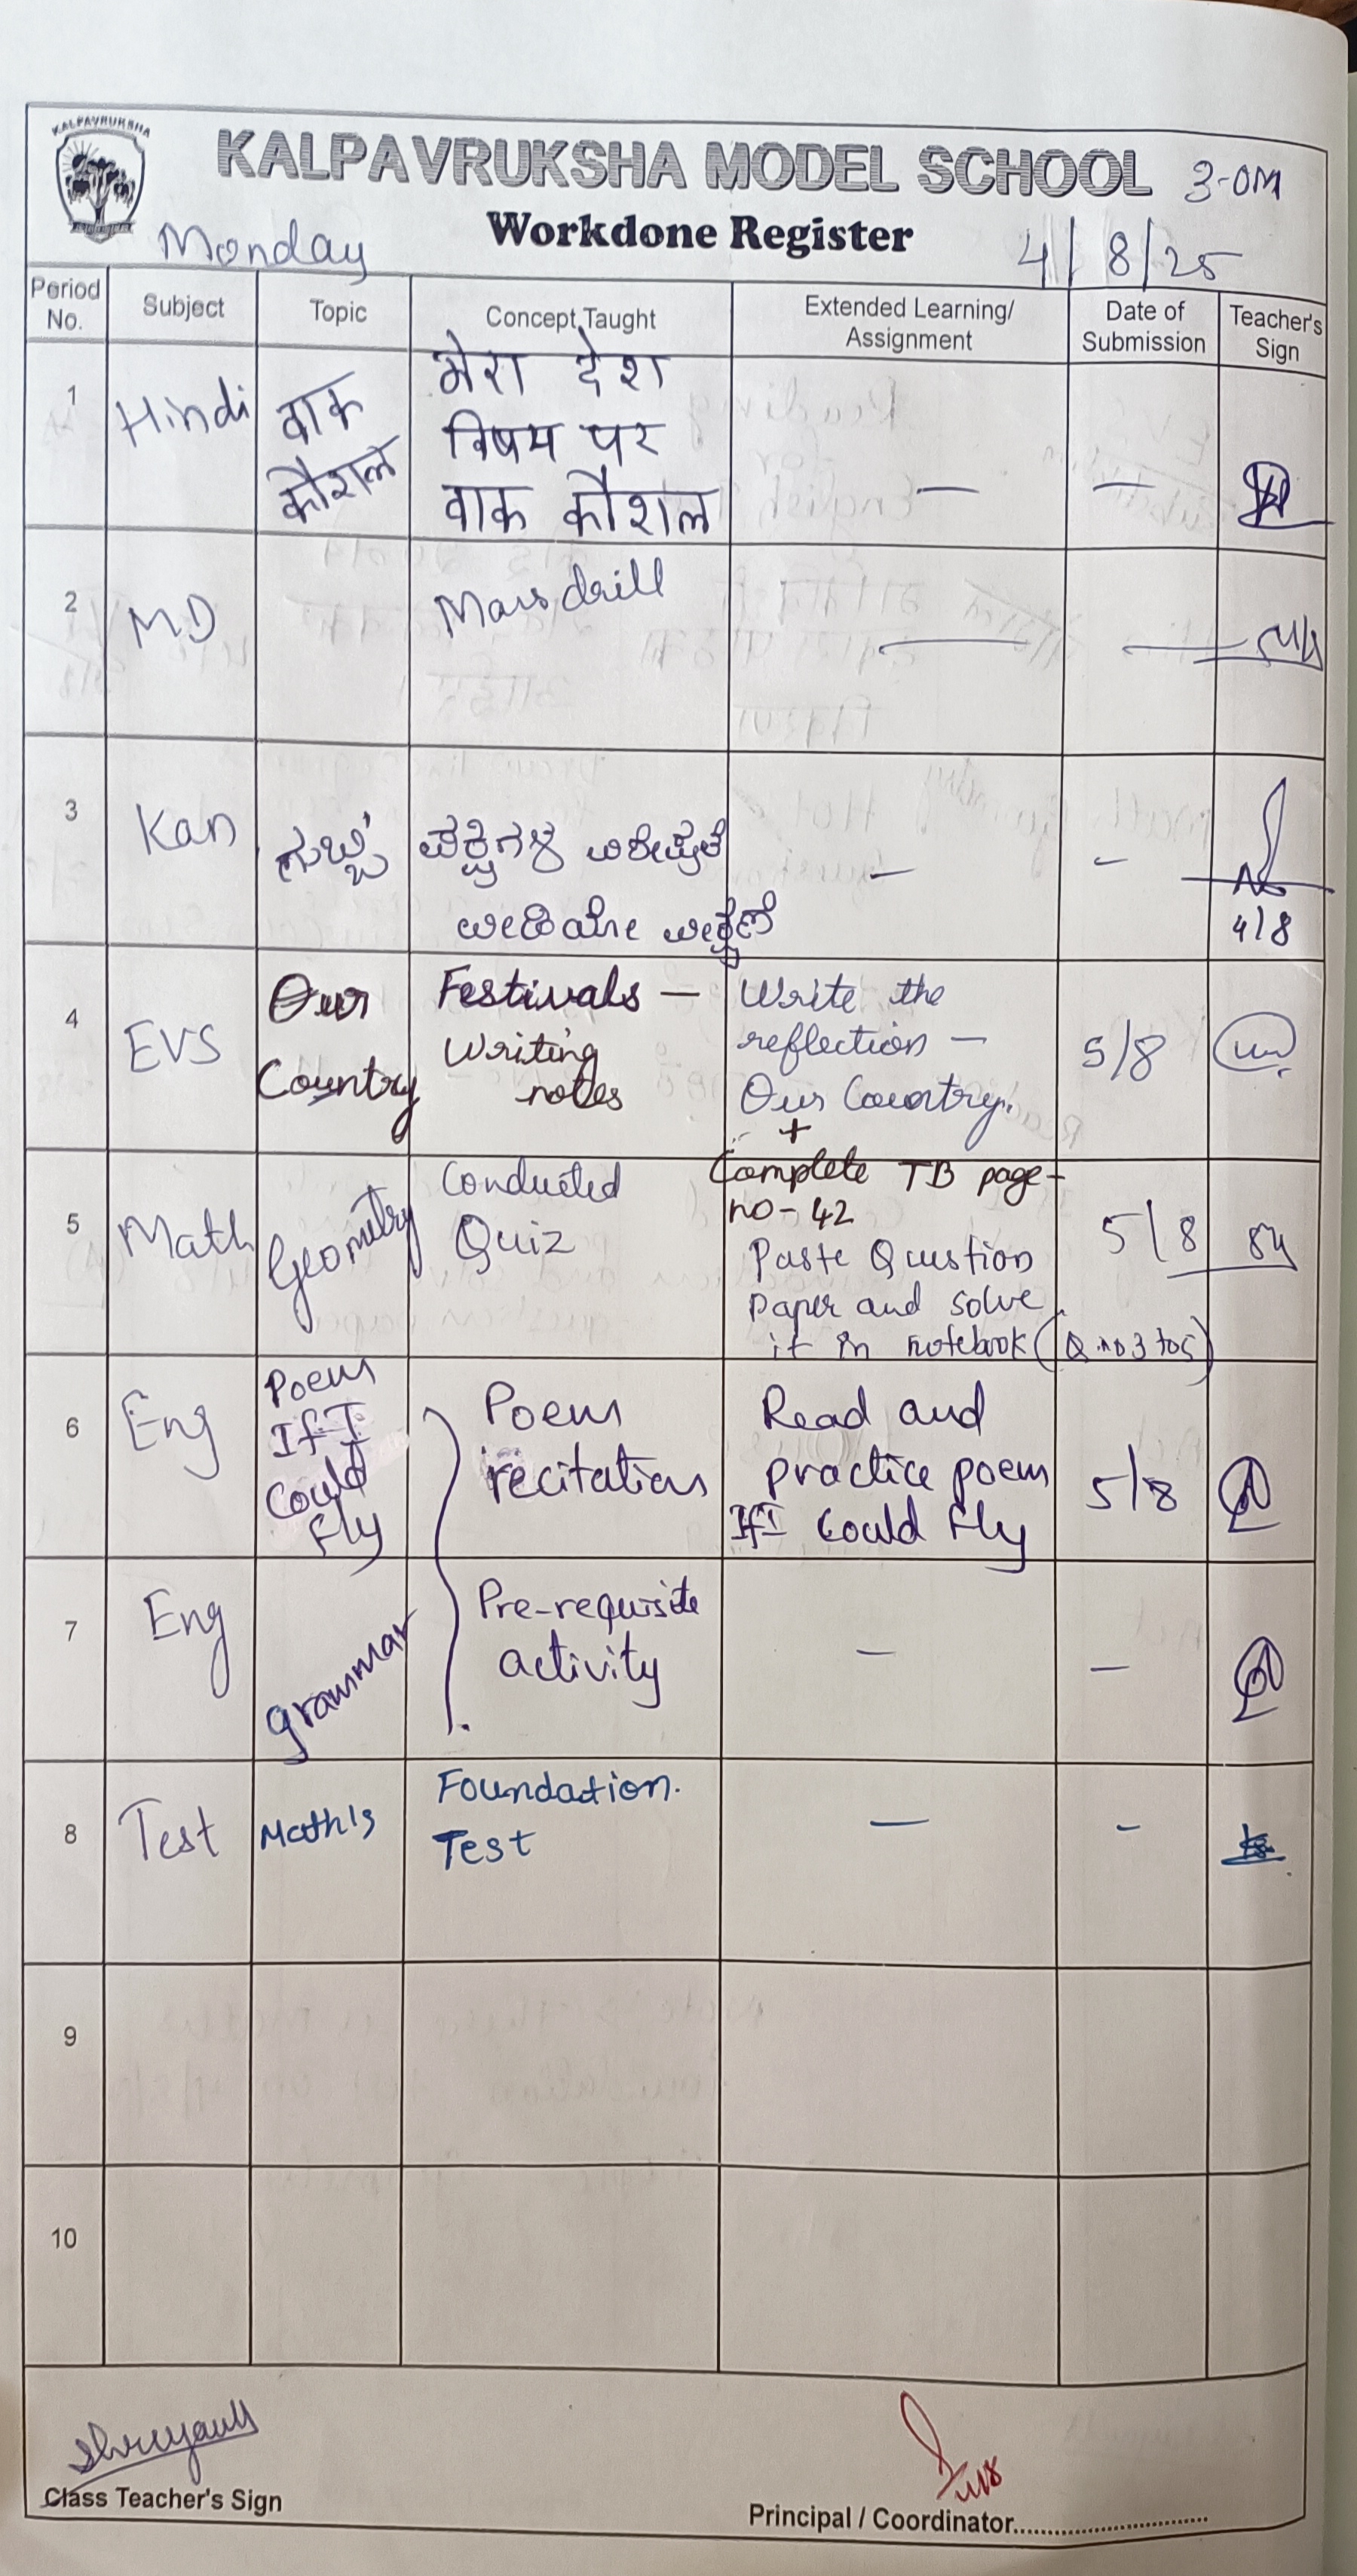 KALPAVRUKSHA
KALPAVRUKSHA MODEL SCHOOL 3-OM
Workdone Register
Monday 4/8/25
Period No. Subject Topic Concept Taught Extended Learning/ Assignment Date of Submission Teacher's Sign
1 Hindi
वाक
कौशल
मेरा देश
विषय पर
वाक कौशल
— —
2 MD Mass drill — —
3 Kan
ಪಕ್ಷಿಗಳ ವಿಶೇಷತೆ
ವೀಡಿಯೋ ವೀಕ್ಷಣೆ
— —
4/8
4 EVS
Our
Country
Festivals —
Writing
notes
Write the
reflection —
Our Country.
+
Complete TB page-
no-42
5/8
5 Math Geometry
Conducted
Quiz
Paste Qustion
paper and solve
it in notebook (Q no 3 to 5)
5/8
6 Eng
Poem
If I
Could
Fly
Poem
recitation
Read and
practice poem
If I Could Fly
5/8
7 Eng grammar
Pre-requisite
activity
— —
8 Test Math's
Foundation.
Test
— -
9
10
Class Teacher's Sign
Principal / Coordinator..............................